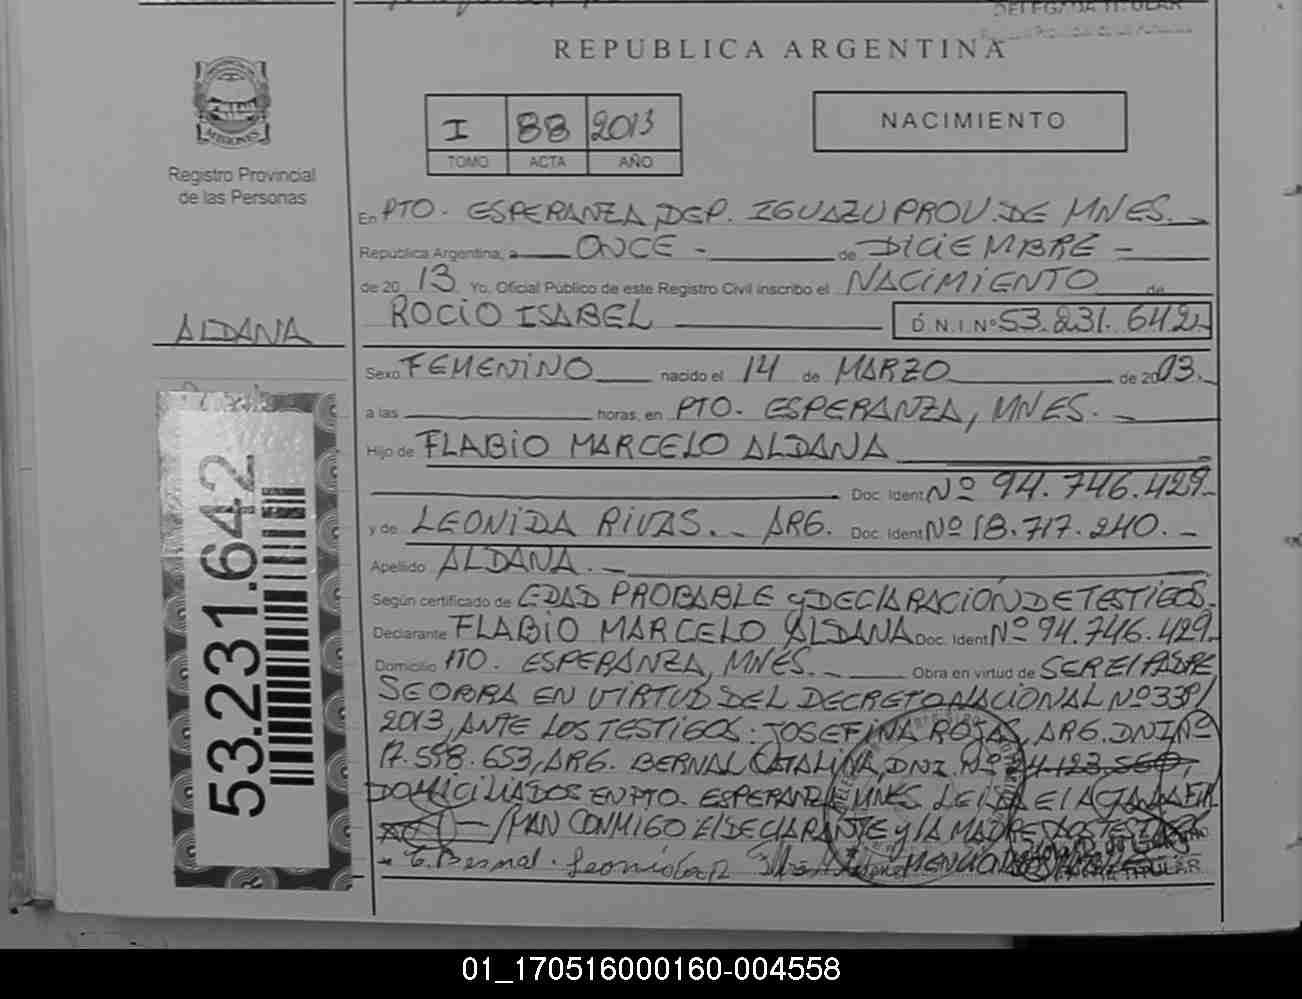 DELEGADA TITULAR
REPUBLICA ARGENTINA
MISIONES
Registro Provincial
de las Personas
I 88 2013
TOMO ACTA AÑO
NACIMIENTO
En PTO. ESPERANZA, DEP. IGUAZU PROV. DE MNES.
República Argentina, a ONCE - de DICIEMBRE -
de 20 13 Yo, Oficial Público de este Registro Civil inscribo el NACIMIENTO de
ROCIO ISABEL D.N.I.Nº 53.231.642
ALDANA
Sexo FEMENINO nacido el 14 de MARZO de 2003.
a las horas, en PTO. ESPERANZA, MNES.
Hijo de FLABIO MARCELO ALDANA
Doc. Ident Nº 94.746.429
y de LEONIDA RIVAS. - ARG. Doc. Ident Nº 18.717.240. -
Apellido ALDANA. -
Según certificado de EDAD PROBABLE y DECLARACION DE TESTIGOS.
Declarante FLABIO MARCELO ALDANA Doc. Ident Nº 94.746.429
Domicilio PTO. ESPERANZA, MNES. Obra en virtud de SER EL PADRE
SE OBRA EN VIRTUD DEL DECRETO NACIONAL Nº 339/
2013, ANTE LOS TESTIGOS: JOSEFINA ROJAS, ARG. DNI Nº
17.598.653, ARG. BERNAL CATALINA, DNI. Nº
DOMICILIADOS EN PTO. ESPERANZA MNES. LEIDA EL ACTA LA FIR
/MAN CONMIGO EL DECLARANTE y LA MADRE
C. Bernal.
TITULAR
53.231.642
01_170516000160-004558